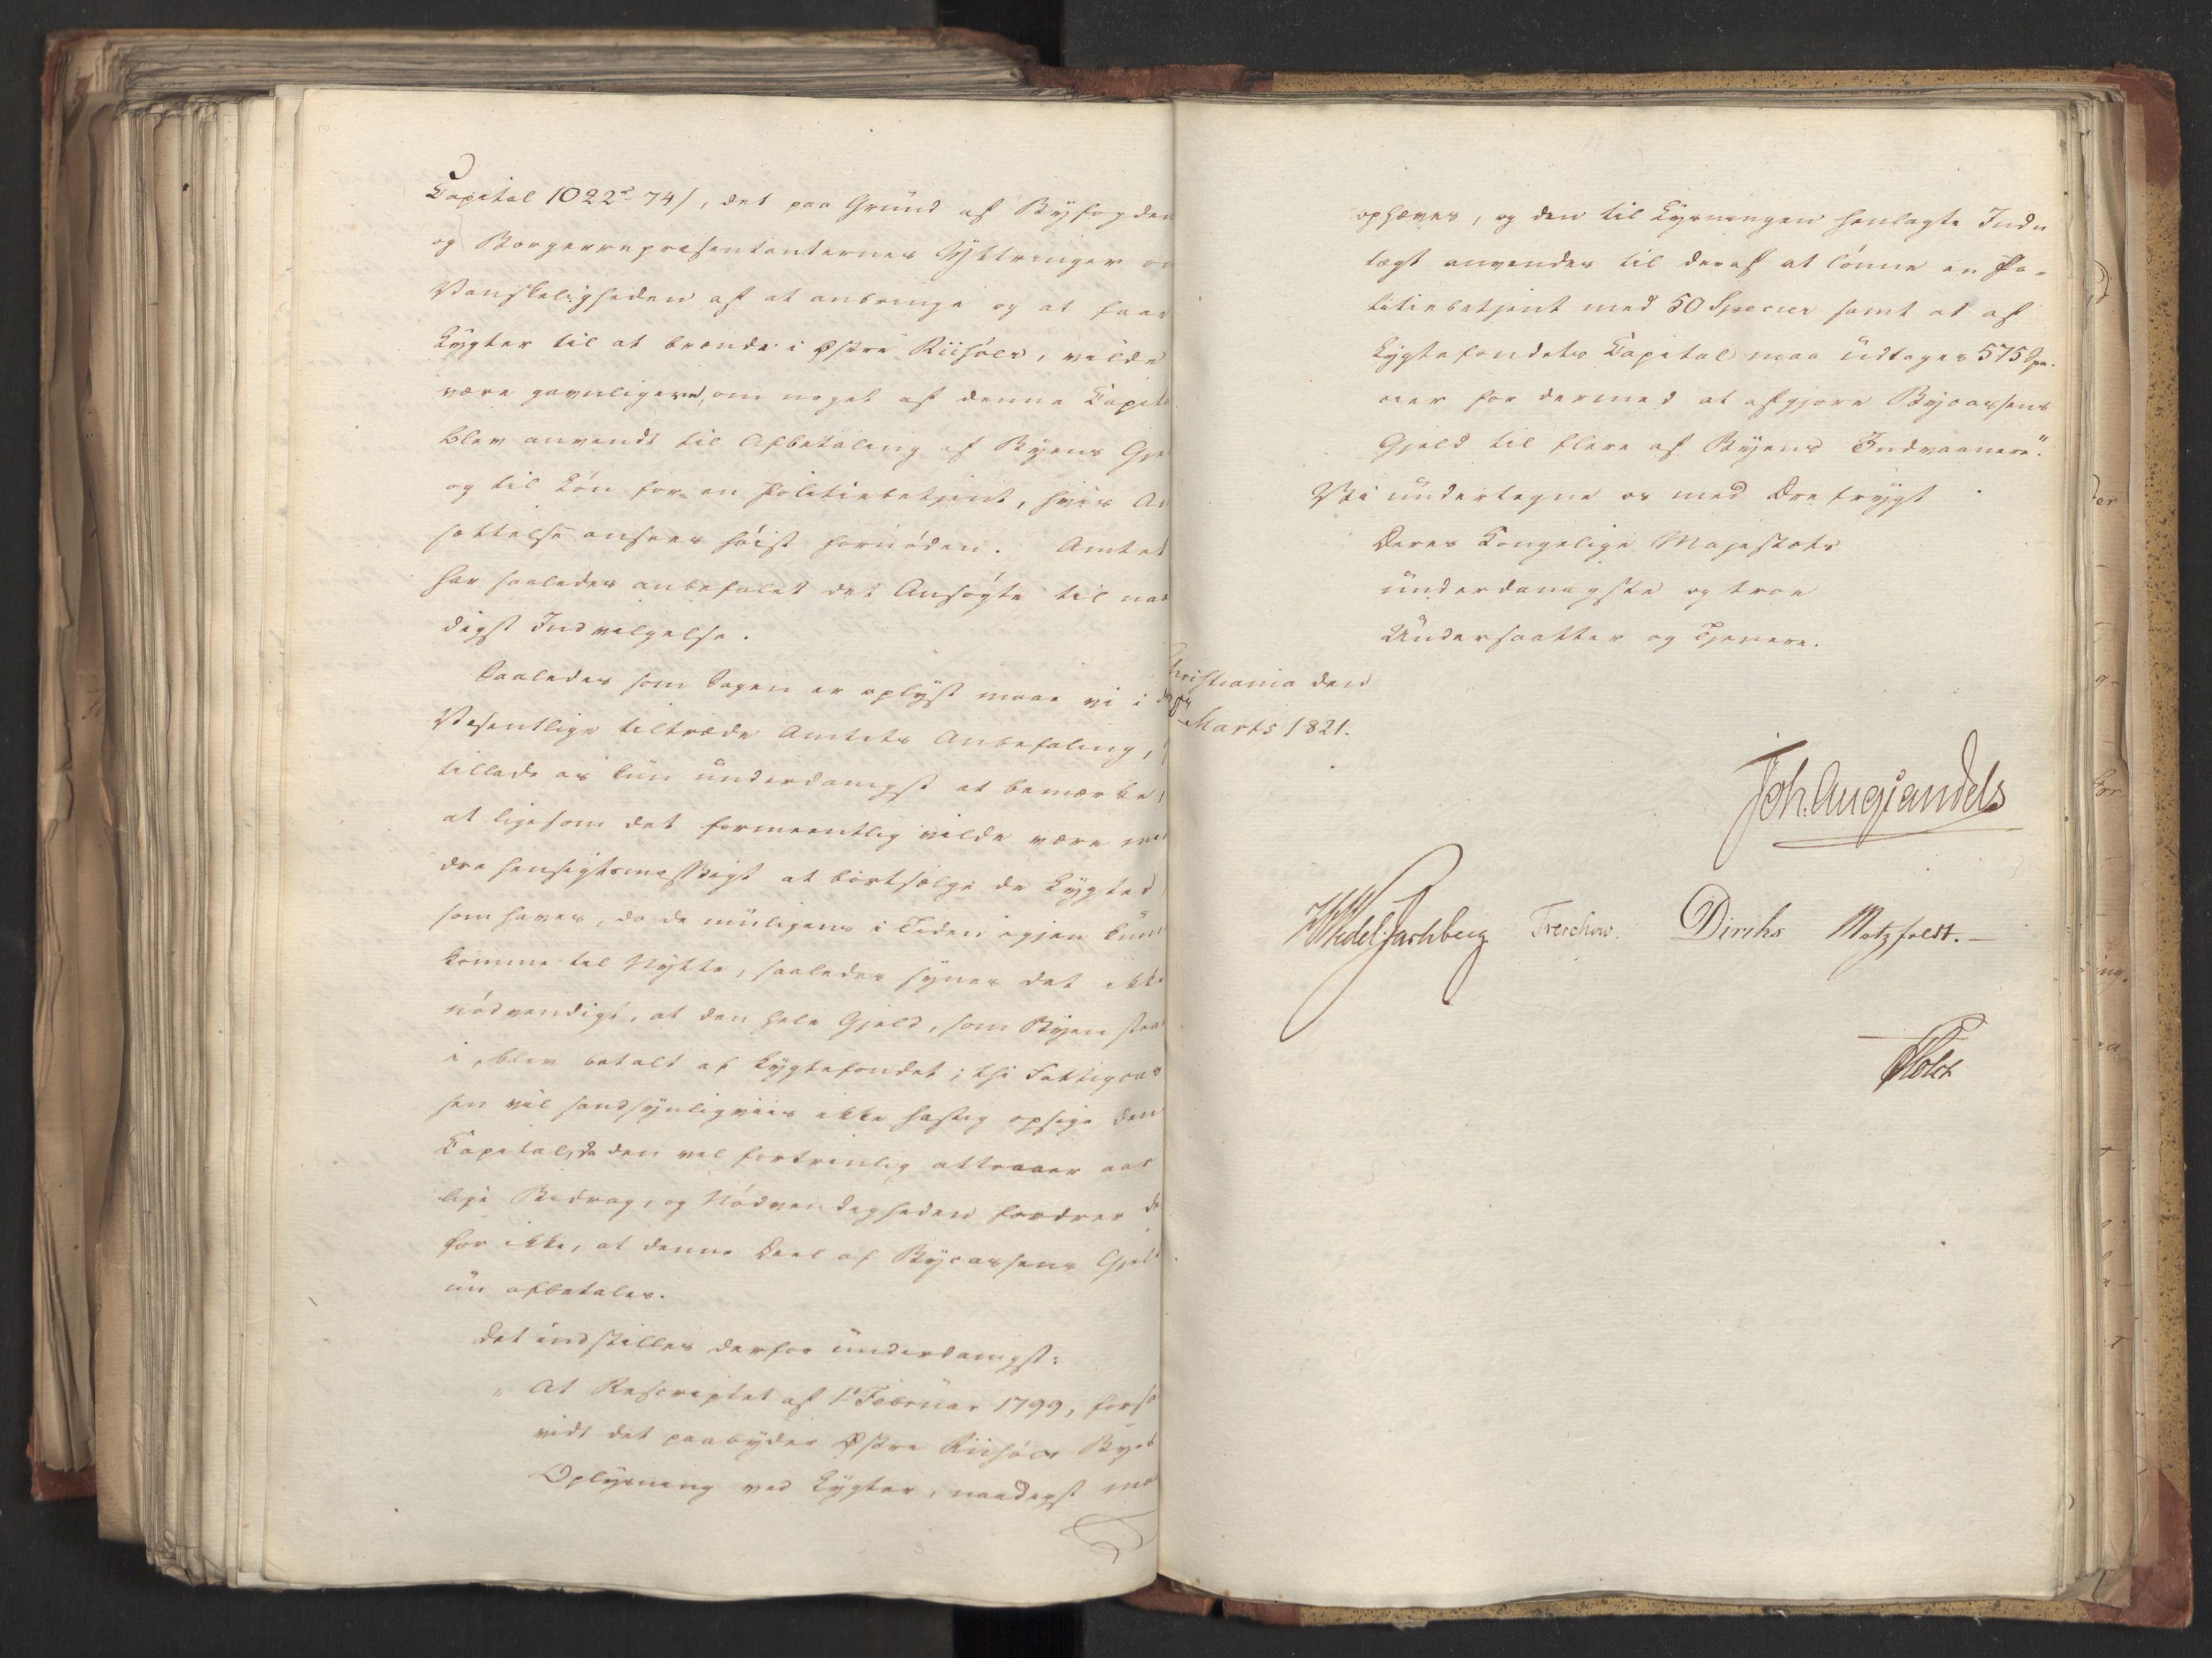 Capital 1022 74/, det paa Grund af Byfogden
og Borgerrepresentanternes Yttringer om
Vanskeligheden af at anbringe og at faae
Lygter til at brænde i Østre Riisöer, vilde
være gavnligere, om noget af denne Capital
blev anvendt til Afbetaling af Byens Gje
og til Lön for en Politiebetjent, hvis An
sættelse ansees höist fornöden. Amtet
har saaledes anbefalet det Ansögte til naa
digst Indvilgelse.
Saaledes som Sagen er oplyst maae vi i det
Væsentlige tiltræde Amtets Anbefaling,
tillade os kun underdanigst at bemærke,
at ligesom det formeentlig vilde være min
dre hensigtsmessigt at bortsælge de Lygter
som haves, da de muligens i Tiden igjen kunde
komme til Nytte, saaledes synes det ikke
nödvendigt, at den hele Gjeld, som Byen staaer
i, blev betalt af Lygtefondet; thi Fattigcas
sen vil sandsynligviis ikke hastig opsige den
Capital, da den vel fortrinlig attraaer aar
lige Bidrag, og Nödvendigheden fordrer der
for ikke, at denne Deel af Bycassens Gjeld
nu afbetales.
Det indstilles derfor underdanigst:
"At Rescriptet af 1 Februar 1799, forsaa
vidt det paabyder Østre Riisöers Byes
Oplysning ved Lygter, naadigst maa
ophæves, og den til Lysningen henlagte Ind
tægt anvendes til deraf at lönne en Po-
litiebetjent med 50 Species samt at af
Lygtefondets Capital maa udtages 575 Spe-
cier for dermed at afgjöre Bycassens
Gjeld til flere af Byens Indvaanere."
Vi undertegne os med Ærefrygt
Deres Kongelige Majestæts
underdanigste og troe
Undersaatter og Tjenere.
Christiania den
8 Marts 1821.
Joh. Aug Sandels
HWedel Jarlsberg Treschow. Diriks Motzfeldt.
Holst